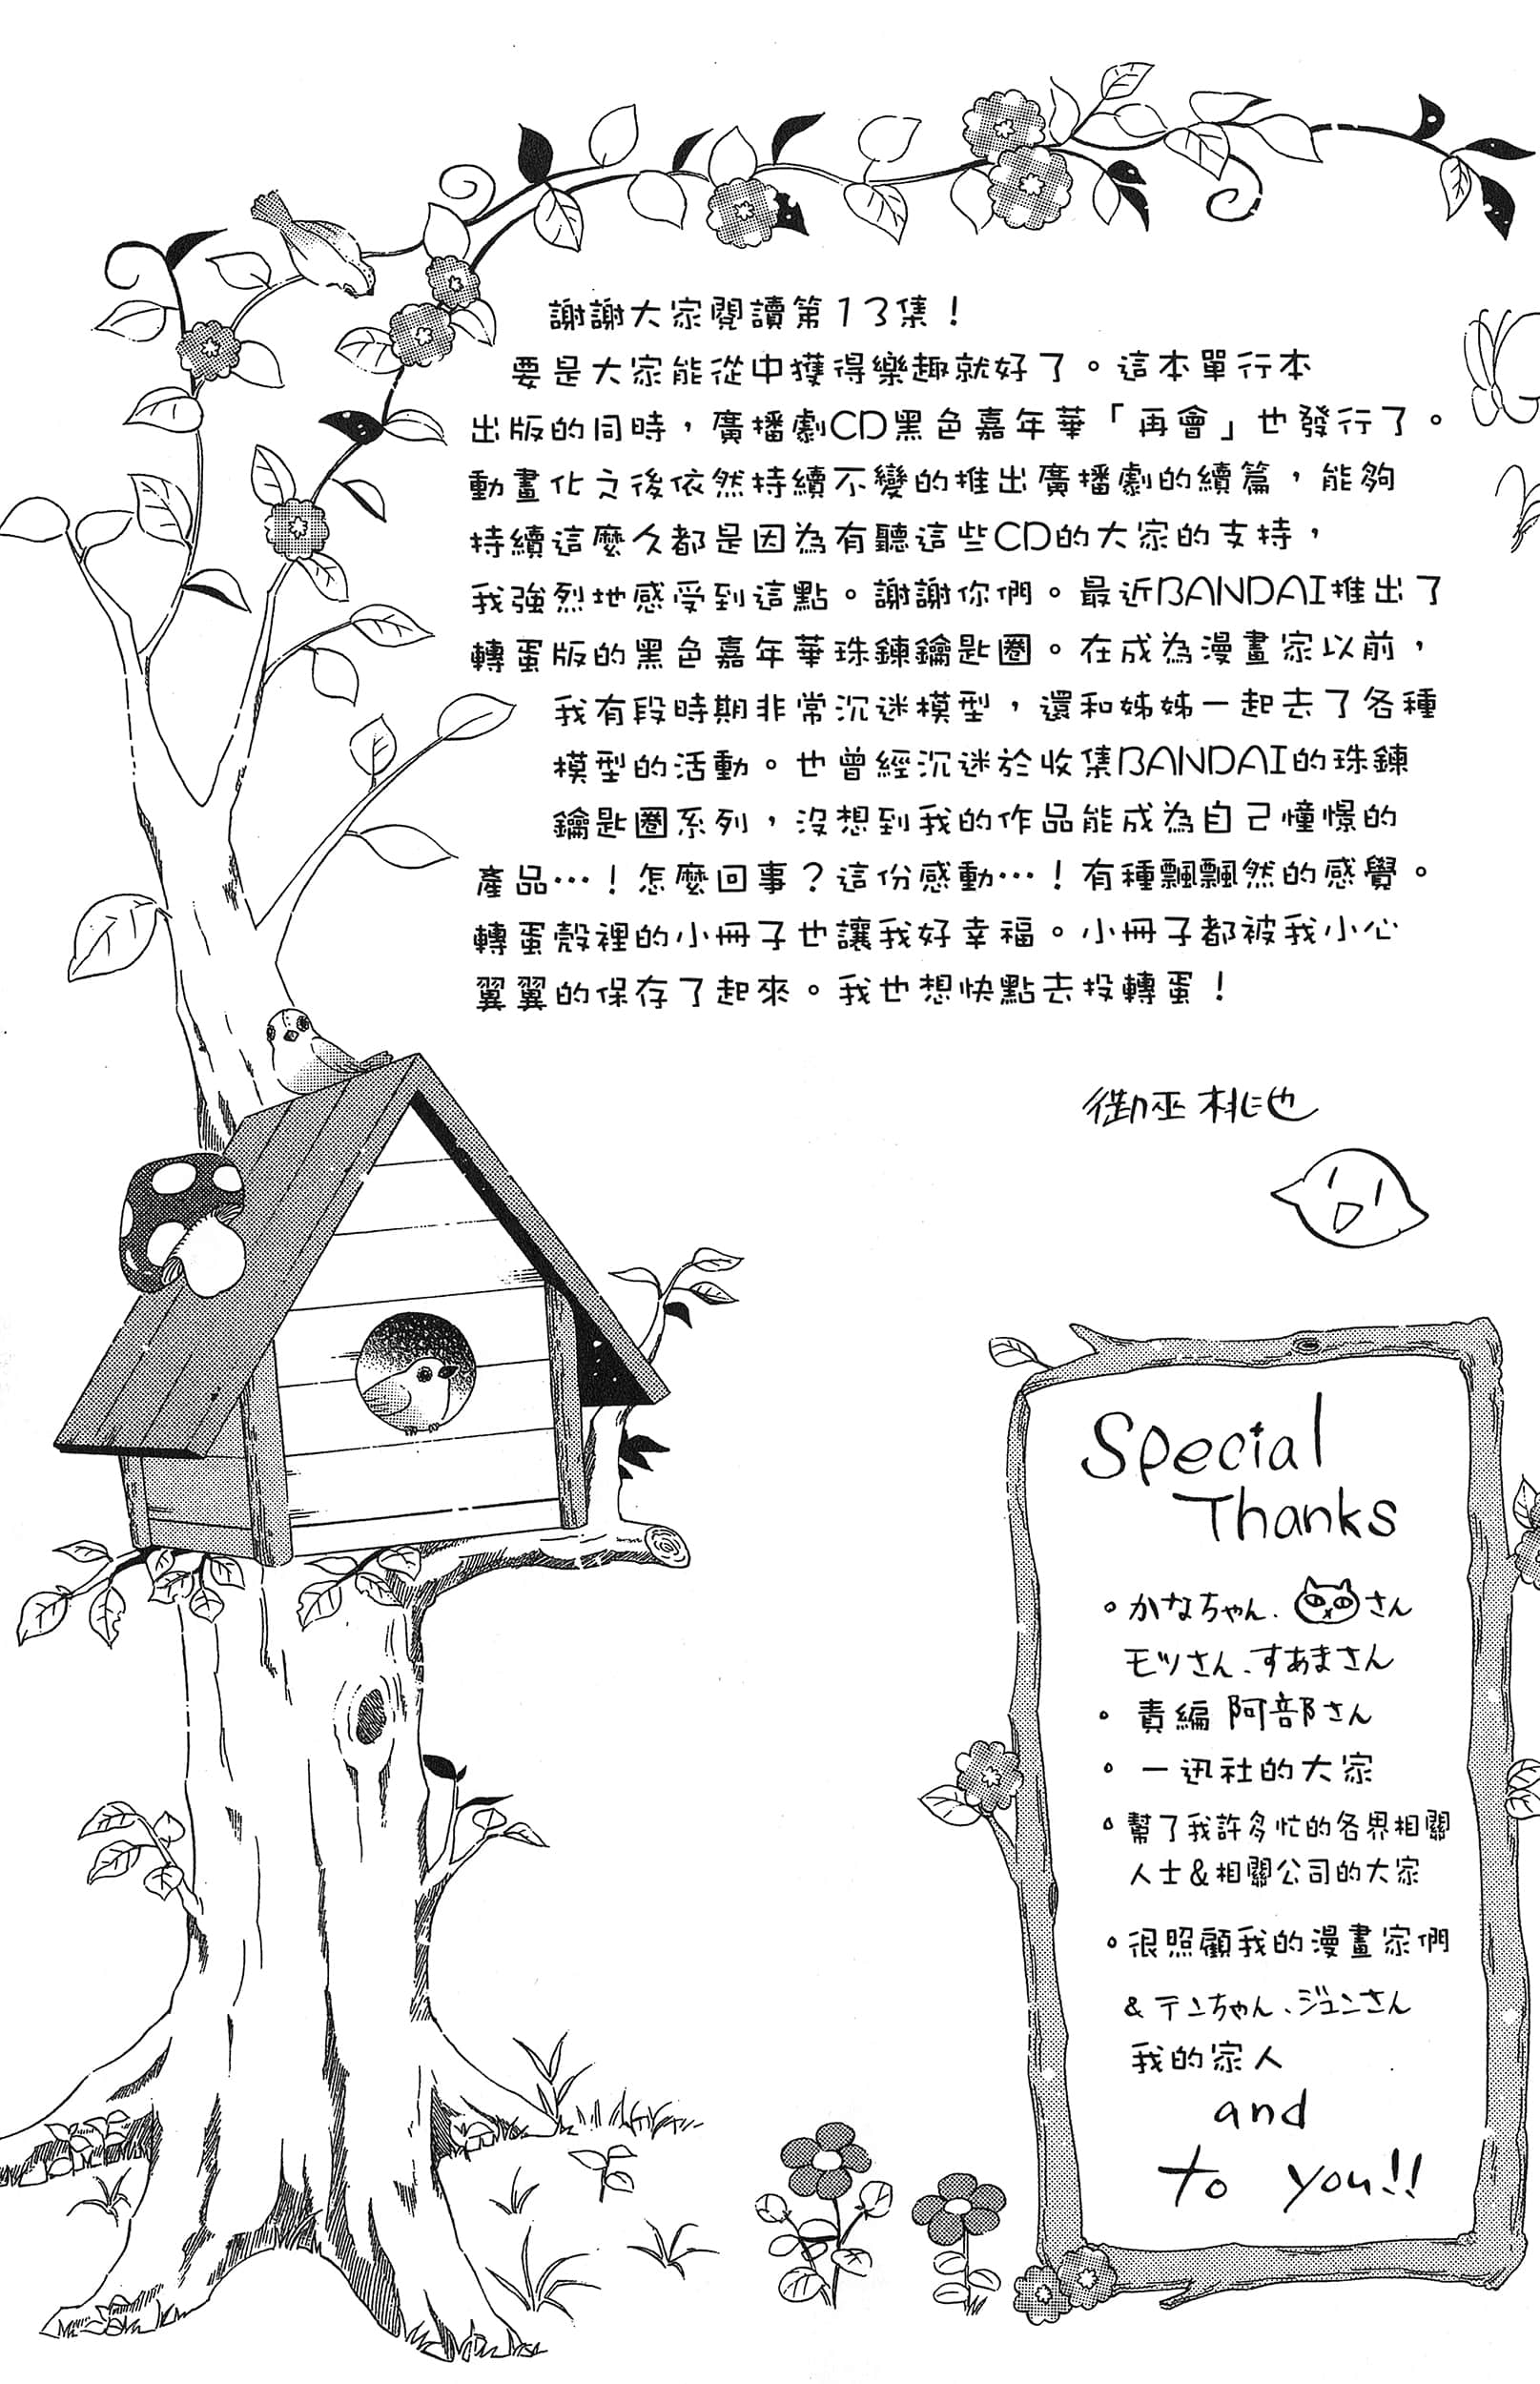 謝謝大家閱讀第13集！
要是大家能從中獲得樂趣就好了。這本單行本
出版的同時，廣播劇CD黑色嘉年華「再會」也發行了。
動畫化之後依然持續不變的推出廣播劇的續篇，能夠
持續這麼久都是因為有聽這些CD的大家的支持，
我強烈地感受到這點。謝謝你們。最近BANDAI推出了
轉蛋版的黑色嘉年華珠鍊鑰匙圈。在成為漫畫家以前，
我有段時期非常沉迷模型，還和姊姊一起去了各種
模型的活動。也曾經沉迷於收集BANDAI的珠鍊
鑰匙圈系列，沒想到我的作品能成為自己憧憬的
產品…！怎麼回事？這份感動…！有種飄飄然的感覺。
轉蛋殼裡的小冊子也讓我好幸福。小冊子都被我小心
翼翼的保存了起來。我也想快點去投轉蛋！
御巫桃也
Special
Thanks
。かなちゃん、さん
モツさん、すあまさん
。責編 阿部さん
。一迅社的大家
。幫了我許多忙的各界相關
人士&相關公司的大家
。很照顧我的漫畫家們
& テンちゃん、ジュンさん
我的家人
and
to you!!